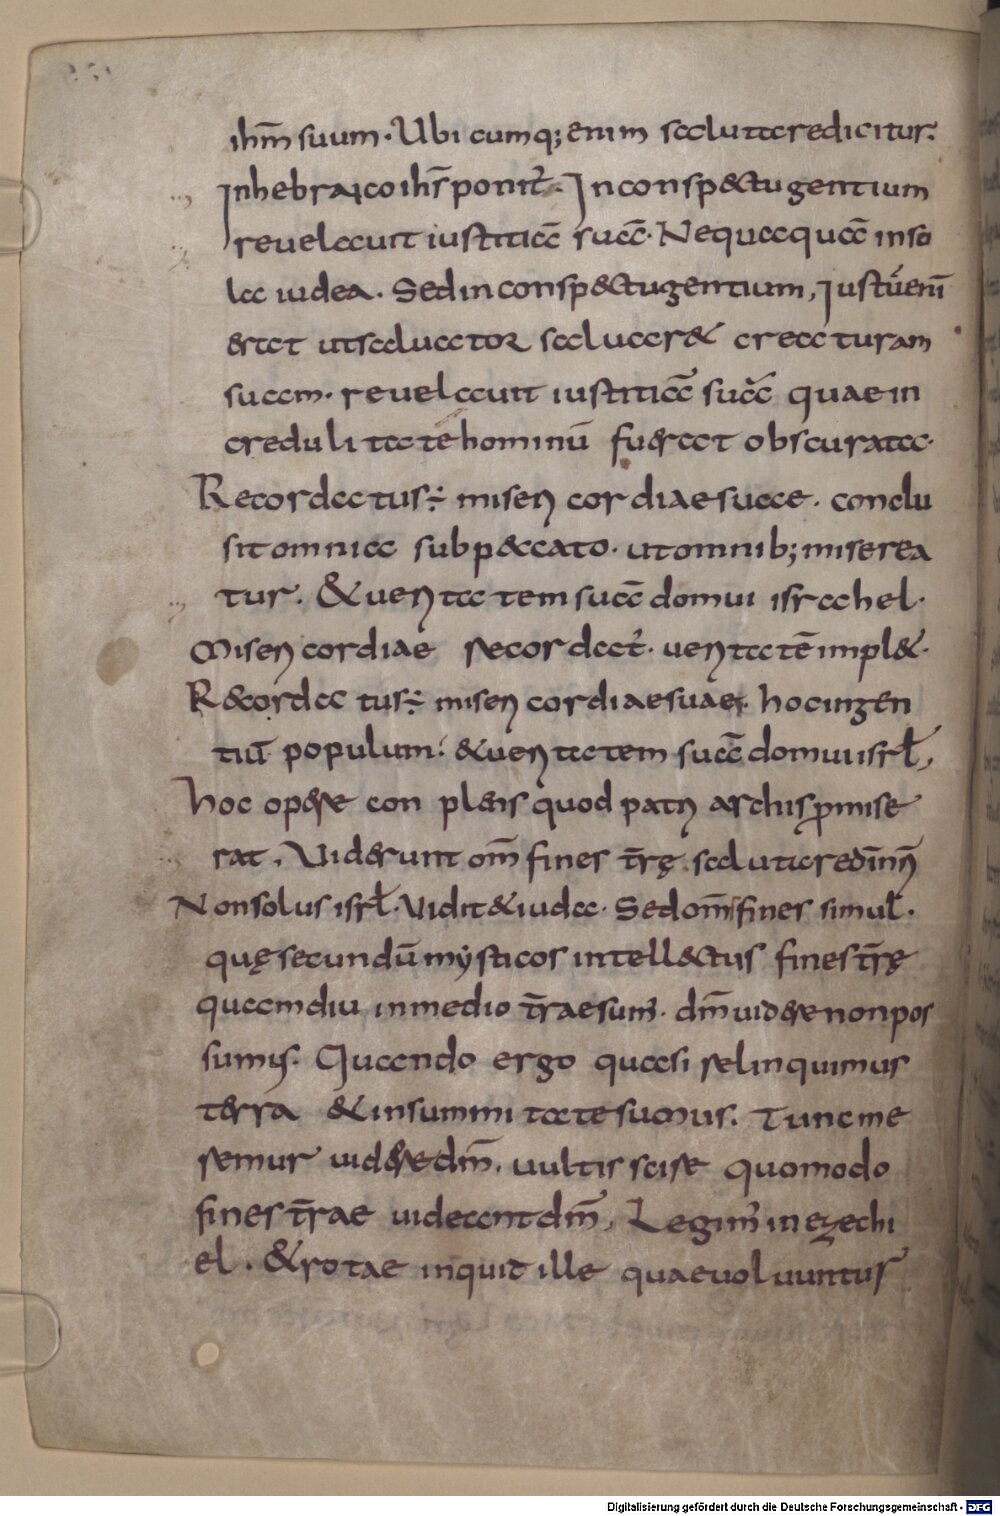 ihm̅ suum. Ubi cumq; enim salutare dicitur.
In hebraico ihs̅ ponit̅. In conspectu gentium
reuelauit iustitiā suā. Nequaquā in so
la iudea. Sed in conspectu gentium, iusti enī
erat ut saluator saluaret creaturam
suam. reuelauit iustitiā suā quae in
credulitate hominū fuerat obscurata.
Recordatus ÷ misericordiae suae. conclu
sit omnia sub peccato. ut omnib; miserea
tur. & ueritatem suā domui israhel.
Misericordiae recordat̅. ueritatē implet.
Recordatus ÷ misericordiae suae. hoc in gen
tiū populum. & ueritatem suā domui isrł,
Hoc opere conpletis quod patriarchis promise
rat. Viderunt om̅ fines tr̅ę salutare di n̅ri
Non solus isrł. Vidit & iudea. Sed om̅ fines simul.
quę secundū mysticos intellectus fines tr̅ę
quamdiu in medio tr̅ae sum̅. dm̅ uidere non pos
sumus. Quando ergo quasi relinquimus
terra & in summitate sumus. Tunc me
remur uidere dm̅. uultis scire quomodo
fines tr̅ae uideant dm̅, Legim̅ in ezechi
el. & rotae inquit ille quae uoluuntur
Digitalisierung gefördert durch die Deutsche Forschungsgemeinschaft - DFG